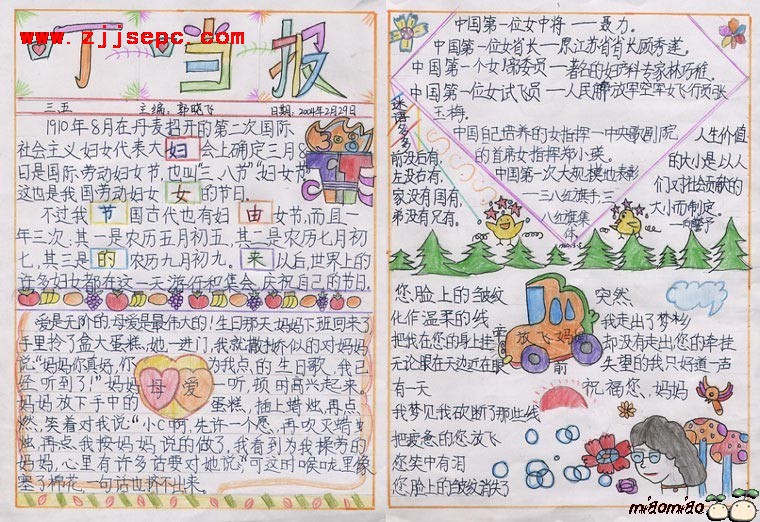 www.zjjsepc.com
叮当报
三五 主编:郭晓飞 日期:2004年2月29日
1910年8月在丹麦召开的第二次国际
社会主义妇女代表大 会上确定三月8
日是国际劳动妇女节,也叫“三八节”“妇女节”
这也是我国劳动妇女 的节日.
妇女节的由来
不过我 国古代也有妇女节,而且一
年三次:其一是农历五月初五,其二是农历七月初
七,其三是 农历九月初九。 以后,世界上的
许多妇女都在这一天游行和集会,庆祝自己的节日.
爱是无价的,母爱是最伟大的!生日那天,妈妈下班回来了,
手里拎了盒大蛋糕,她一进门,我就撒娇似的对妈妈
说:“妈妈你真好,你 为我点的,生日歌,我已
经听到了!”妈妈 一听,顿时高兴起来。
母爱
妈妈放下手中的 蛋糕,插上蜡烛,再点
燃,笑着对我说:“小C啊,先许一个愿,再吹灭蜡
烛,再点,我按妈妈说的做了,我看到为我操劳的
妈妈,心里有许多话要对她说,可这时喉咙里像
塞了棉花,一句话也挤不出来。
中国第一位女中将——聂力。
中国第一位女省长——原江苏省省长顾秀莲。
中国第一个女 委员——著名的妇产科专家林巧稚。
中国第一位女试飞员——人民解放军空军女飞行员张
玉梅。
中国自己培养的女指挥——中央歌剧院
的首席女指挥郑小英。
中国第一次大规模地表彰
——三八红旗手,三
八红旗集
体
谜语多多
前没后有,
左没右有,
家没有国有,
弟没有兄有。
人生价值
的大小是以人
们对社会贡献的
大小而制定。
放飞妈
您脸上的皱纹
化作温柔的线
把我在您的身上挂
无论眼在天边近在眼前
有一天
我梦见我砍断了那些线
把疲惫的您放飞
您笑中有泪
您脸上的皱纹消失了
突然,
我走出了梦乡
却没有走出您的牵挂
失望的我只好道一声
祝福您,妈妈
miaomiao